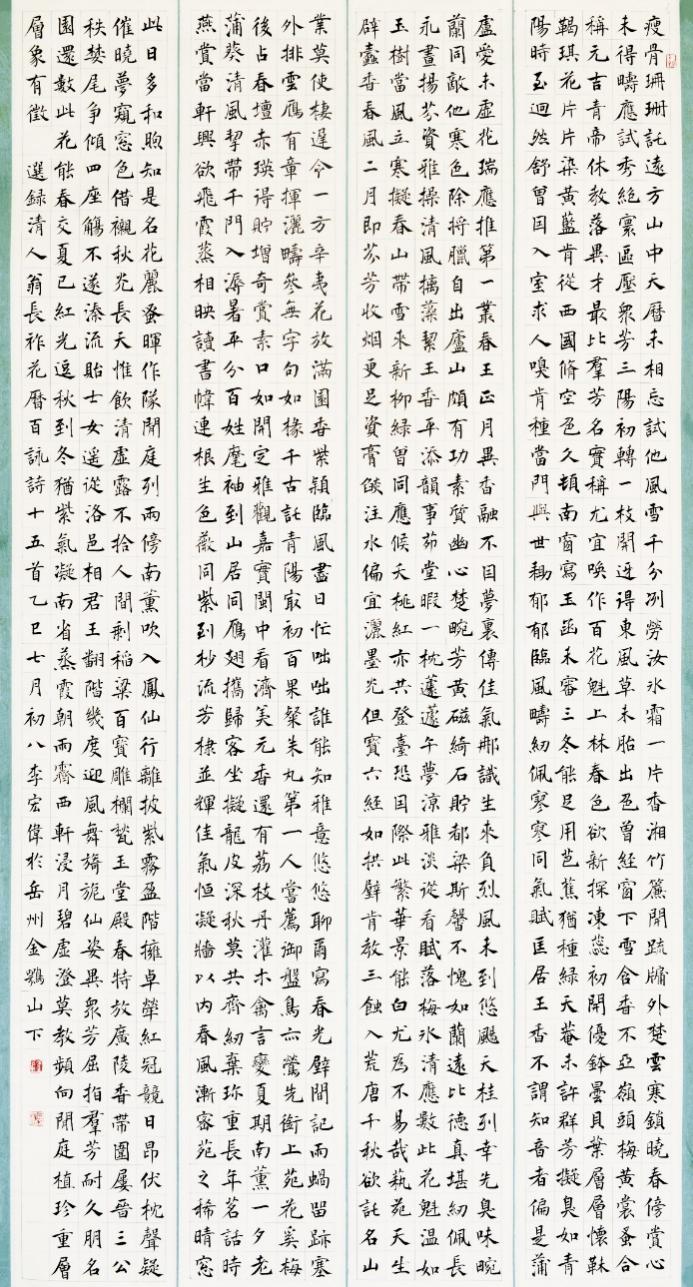 瘦骨珊珊託遠方山中天曆未相忘試他風雪千分冽勞汝冰霜一片杳湘竹簾開疏牖外楚雲寒鎖曉春傍賞心
未得疇應試秀絕寰區壓眾芳三陽初轉一枝開迓得東風草未胎出色曾經窗下雪合香不亞嶺頭梅黃裳蚤合
稱元吉青帝休教落異才最比羣芳名實稱尤宜喚作百花魁上林春色欲新探凍蕊初開優鉢曇貝葉層層懷靺
鞨琪花片片染黃藍肯從西國脩空色久頓南窗寫玉函未審三冬能足用芭蕉猶種綠天菴未許群芳擬臭如青
陽時至迥然舒曾因入室求人嗅肯種當門與世耡郁郁臨風疇紉佩寒寒同氣賦匡居王香不謂知音者偏是蒲
盧愛未虛花瑞應推第一叢春王正月異香融不因夢裏傳佳氣那識生來負烈風未到悠颺天桂列幸先臭味畹
蘭同敵他寒色除將臘自出廬山頗有功素質幽心楚畹芳黃磁綺石貯都梁斯馨不愧如蘭遠比德真堪紉佩長
永晝揚芬資雅操清風摛藻挈王香平添韻事茆堂暇一枕蘧蘧午夢涼雅淡從看賦落梅冰清應數此花魁溫如
玉樹當風立寒擬春山帶雪來新柳綠曾同應候夭桃紅亦共登臺恐因際此繁華景能白尤為不易哉蓺苑天生
辟蠹香春風二月即芬芳收烟更足資膏燄注水偏宜灑墨光但寶六經如拱璧肯教三蝕入荒唐千秋欲託名山
業莫使棲遲令一方辛夷花放滿園香紫穎臨風盡日忙咄咄誰能知雅意悠悠聊爾寫春光壁間記雨蝸留跡塞
外排雲雁有章揮灑疇參無字句如椽千古託青陽最初百果粲朱丸第一人嘗薦御盤鳥亦鶯先銜上苑花奚梅
後占春壇赤瑛得貯增奇賞素口如開定雅觀嘉實閩中看濟美元香還有荔枝丹灌木禽言變夏期南薰一夕老
蒲葵清風挈帶千門入溽暑平分百姓麾袖到山居同雁翅攜歸客坐擬龍皮深秋莫共齊紈棄珍重長年茗話時
燕賞當軒興欲飛霞蒸相映讀書幃連根生色薇同紫到杪流芳棣並輝佳氣恒凝牆以內春風漸容苑之稀晴窓
此日多和煦知是名花麗蚤暉作隊開庭列兩停南薰吹入鳳仙行離披紫霧盈階擁卓犖紅冠競日昂伏枕聲疑
催曉夢窺窓色借襯秋光長天惟飲清虛露不拾人間剩稻粱百寶雕欄甃玉堂殿春特放廣陵香帶圍屢晉三公
秩婪尾爭傾四座觴不遂溱流貽士女遥從洛邑相君王翻階幾度迎風舞旖旎仙姿異眾芳屈指羣芳耐久朋名
園還數此花能春交夏已紅光逗秋到冬猶紫氣凝南省蒸霞朝雨霽西軒浸月碧虛澄莫教頻向閒庭植珍重層
層象有徵 選録清人翁長祚花曆百詠詩十五首乙巳七月初八李宏偉於岳州金鶚山下